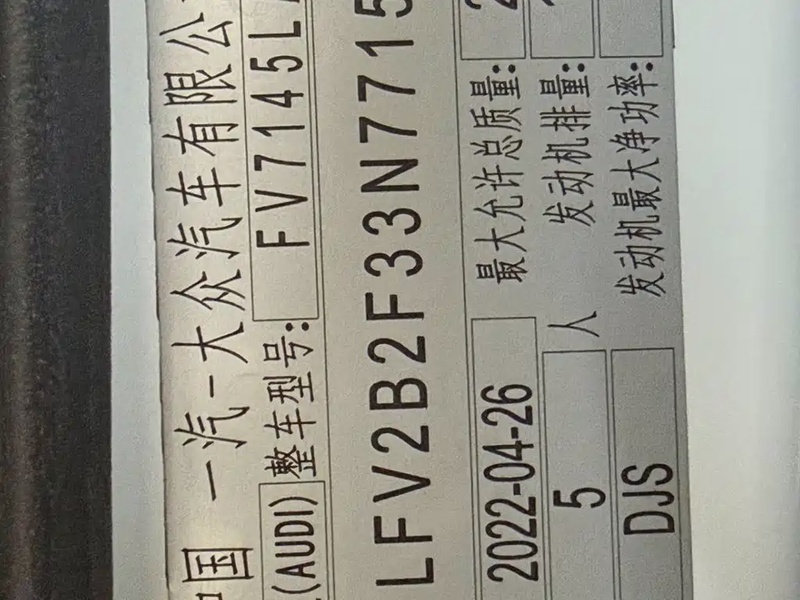 中国 一汽-大众汽车有限公
(AUDI) 整车型号: FV7145L
LFV2B2F33N7715
2022-04-26 最大允许总质量: 2
5 人 发动机排量:
DJS 发动机最大净功率: